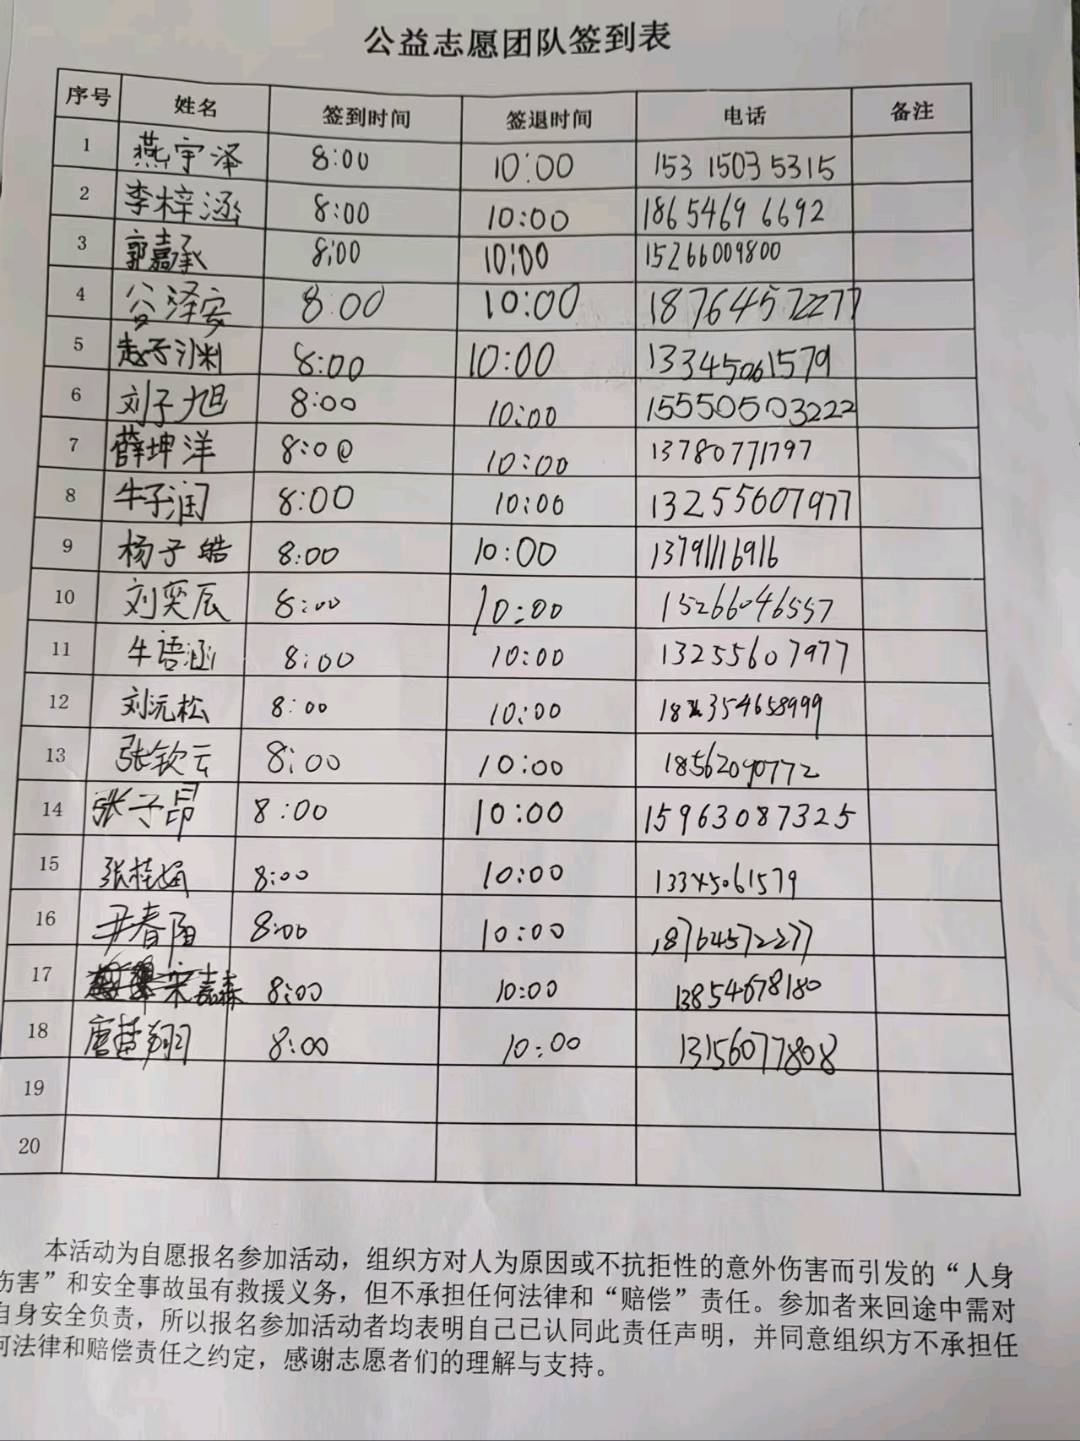 公益志愿团队签到表
序号 姓名 签到时间 签退时间 电话 备注
1 燕宇泽 8:00 10:00 153 1503 5315
2 李梓涵 8:00 10:00 186 5469 6692
3 郭嘉承 8:00 10:00 15266009800
4 谷泽安 8:00 10:00 18764572277
5 赵子沐 8:00 10:00 13345061579
6 刘子旭 8:00 10:00 15550503222
7 薛坤洋 8:00 10:00 13780771797
8 牛子润 8:00 10:00 13255607977
9 杨子皓 8:00 10:00 13791116916
10 刘奕辰 8:00 10:00 15266046557
11 牛语涵 8:00 10:00 13255607977
12 刘沅松 8:00 10:00
13 张钦云 8:00 10:00 18562090772
14 张子昂 8:00 10:00 15963087325
15 张桂娟 8:00 10:00 13345061579
16 尹春阳 8:00 10:00 18764572277
17 宋嘉森 8:00 10:00 13854678180
18 唐楚翔 8:00 10:00 13156077808
19
20
本活动为自愿报名参加活动，组织方对人为原因或不抗拒性的意外伤害而引发的“人身
伤害”和安全事故虽有救援义务，但不承担任何法律和“赔偿”责任。参加者来回途中需对
自身安全负责，所以报名参加活动者均表明自己已认同此责任声明，并同意组织方不承担任
何法律和赔偿责任之约定，感谢志愿者们的理解与支持。